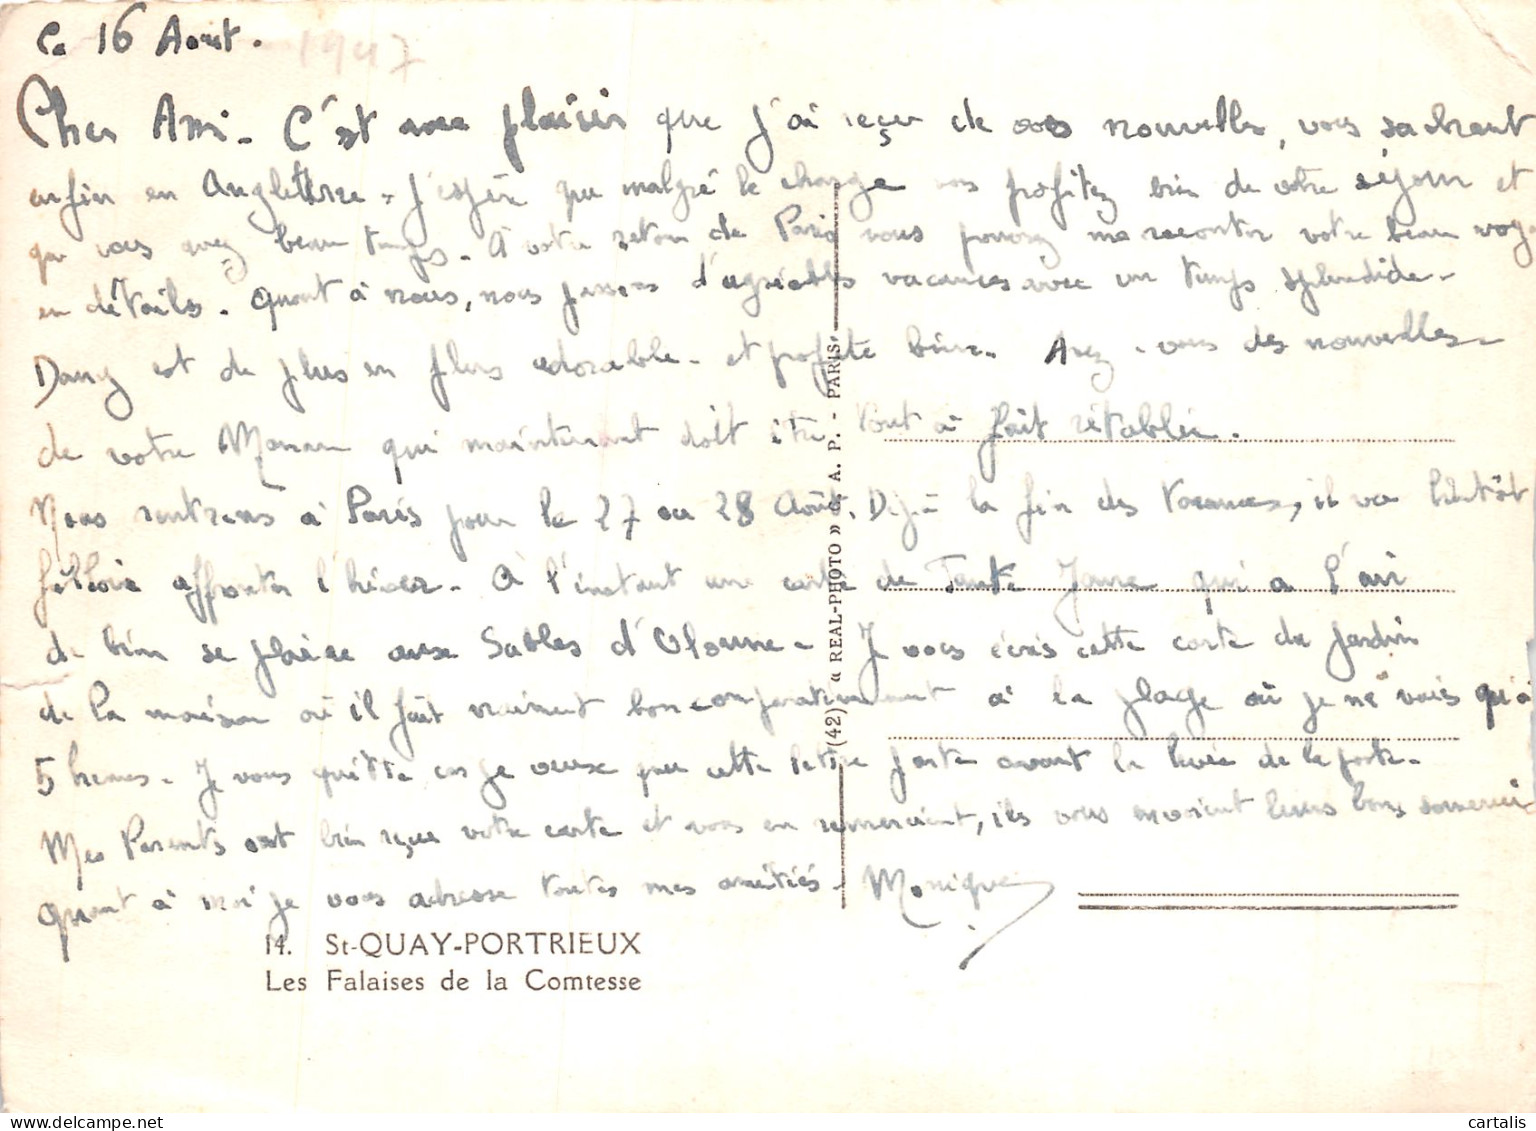 Le 16 Août. 1947
Cher Ami. C'est avec plaisir que j'ai reçu de vos nouvelles, vous sachant
enfin en Angleterre. J'espère que malgré le change vous profitez bien de votre séjour et
que vous avez beau temps. A votre retour de Paris vous pourrez me raconter votre beau voyage
en détails. Quant à nous, nous passons d'agréables vacances avec un temps splendide.
Dany est de plus en plus adorable. et profite bien. Avez-vous des nouvelles
de votre Maman qui maintenant doit être tout à fait rétablie.
Nous rentrons à Paris pour le 27 ou 28 Août. Déjà la fin des vacances, il va bientôt
falloir affronter l'hiver. A l'instant une carte de Tante Jeanne qui a l'air
de bien se plaire aux Sables d'Olonne. Je vous écris cette carte du jardin
de la maison où il fait vraiment bon comparativement à la plage où je ne vais qu'à
5 heures. Je vous quitte car je veux que cette lettre parte avant la levée de la poste.
Mes Parents ont bien reçu votre carte et vous en remercient, ils vous envoient leurs bons souvenirs
quant à moi je vous adresse toutes mes amitiés. Monique
(42) « REAL-PHOTO » C. A. P. - PARIS
14. St-QUAY-PORTRIEUX
Les Falaises de la Comtesse
cartalis